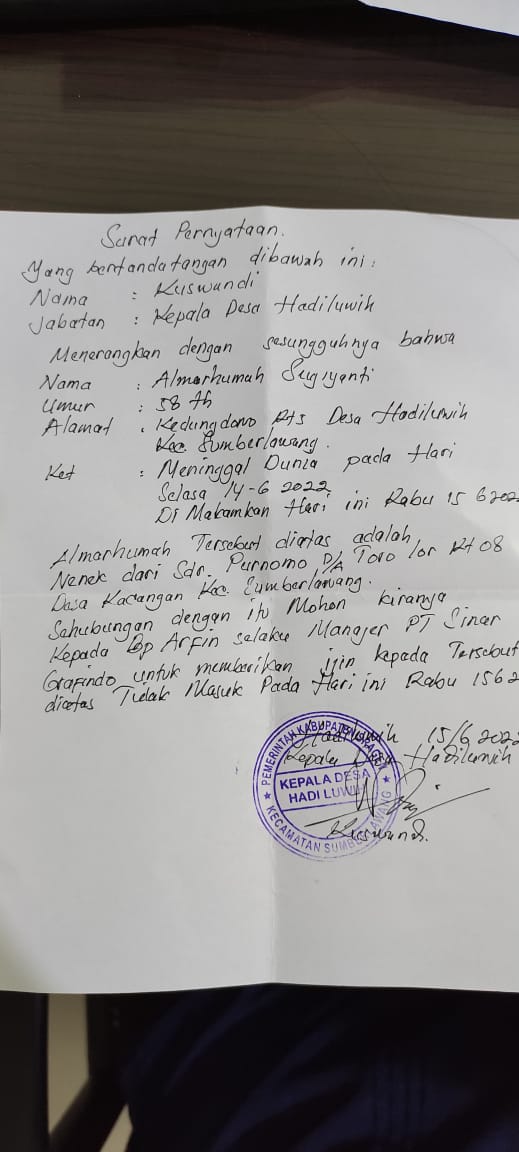 Surat Pernyataan.
Yang bertandatangan dibawah ini :
Nama : Kuswandi
Jabatan : Kepala Desa Hadiluwih
Menerangkan dengan sesungguhnya bahwa
Nama : Almarhumah Sugiyanti
Umur : 58 th
Alamat : Kedungdowo Rt5 Desa Hadiluwih
Kec. Sumberlawang.
Ket : Meninggal Dunia pada Hari
Selasa 14-6 2022
Di Makamkan Hari ini Rabu 15 6 202
Almarhumah Tersebut diatas adalah
Nenek dari Sdr. Purnomo D/A Toro lor Rt 08
Desa Kacangan Kec. Sumberlawang.
Sehubungan dengan itu Mohon kiranya
Kepada Bp Arfin selaku Manajer PT Sinar
Grafindo untuk memberikan ijin kepada Tersebut
diatas Tidak Masuk Pada Hari ini Rabu 15 6 2
Hadiluwih 15/6 2022
Kepala Desa Hadiluwih
PEMERINTAH KABUPATEN SRAGEN
KEPALA DESA
HADI LUWIH
KECAMATAN SUMBERLAWANG
Kuswandi.